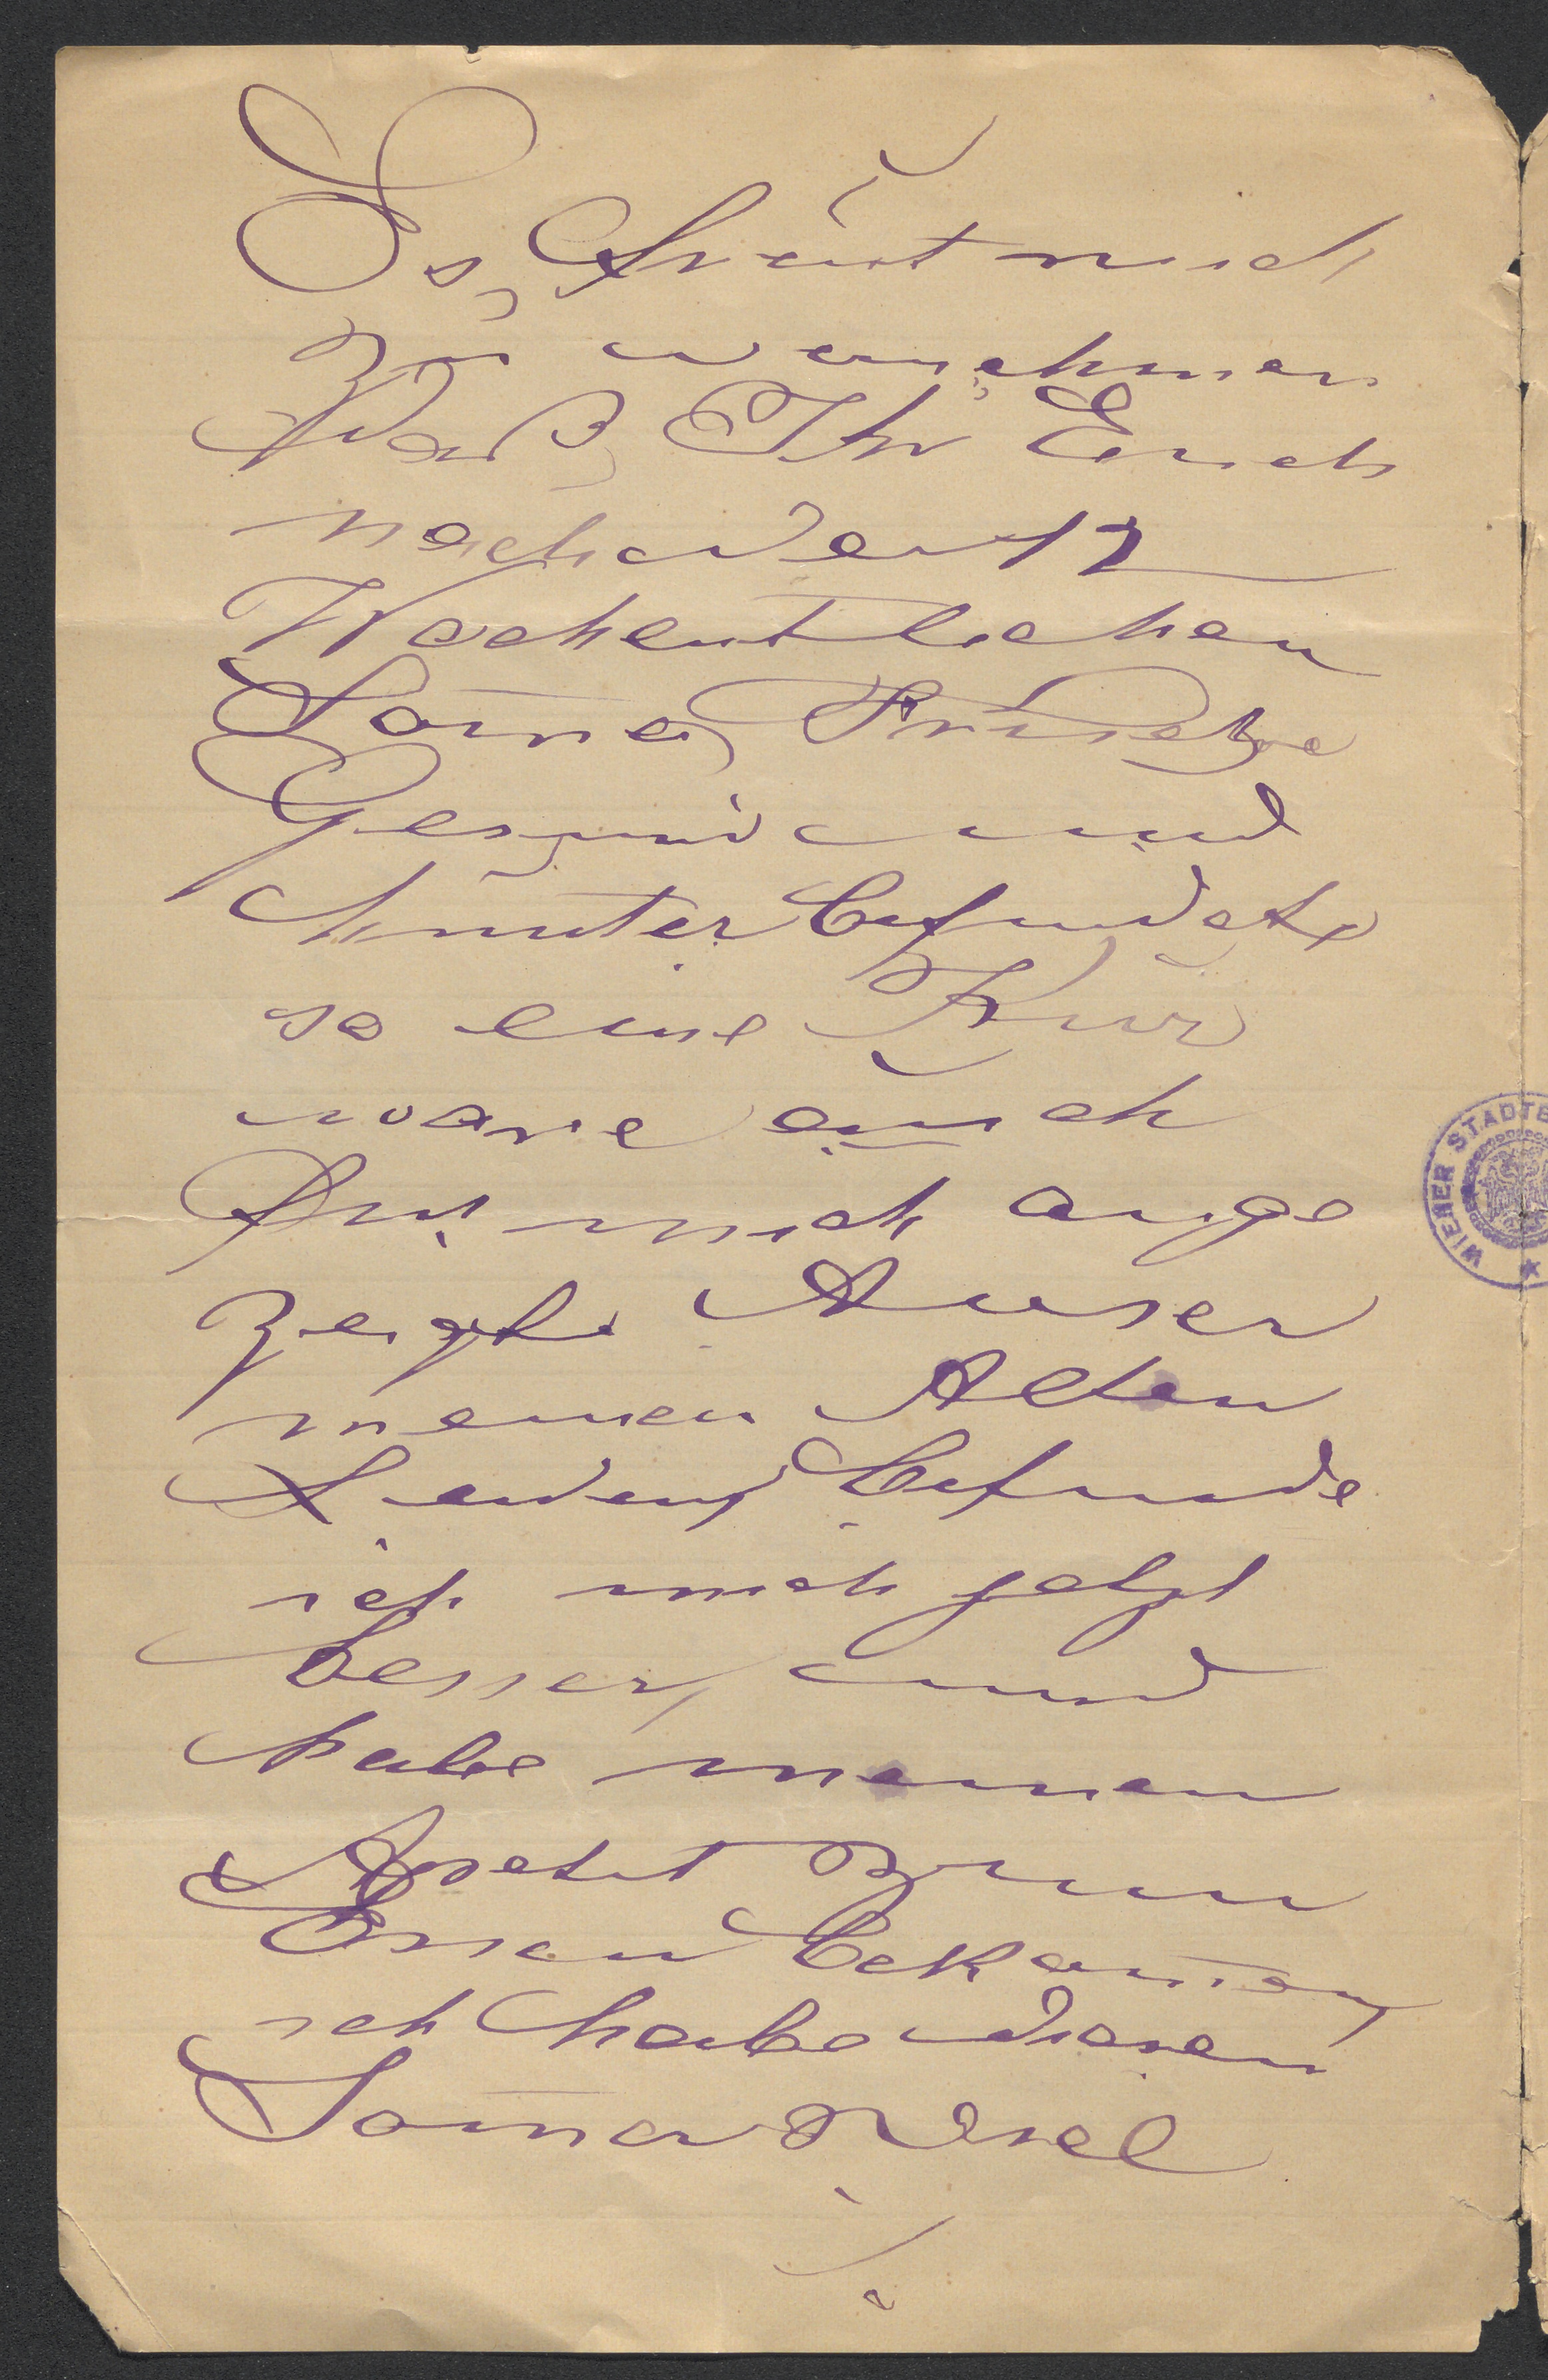 Es, freut mich
zu vernehmen
Daß, Ihr Euch
nach der 12
Wochentlichen
Somer Frische
Gesund und
Munter befindets
so eine Kur
ware auch
Für mich ange
zeigt. Auser
meinen Alten
Leiden, befinde
ich mich jetzt
besser, und
habe meinen
Apetit zum
Essen bekomen,
ich habe diesen
Somer viel
WIENER STADTB